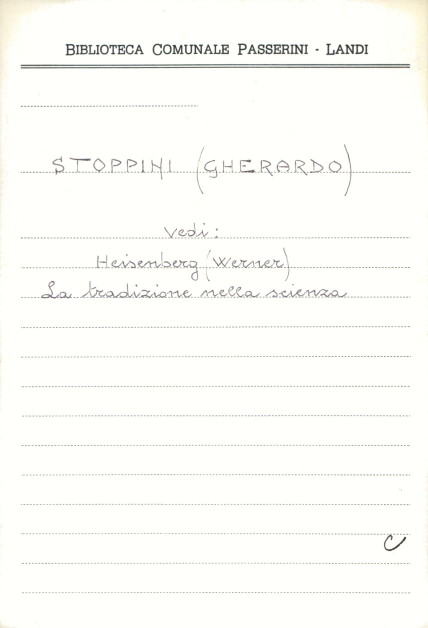 BIBLIOTECA COMUNALE PASSERINI - LANDI
STOPPINI (GHERARDO)
Vedi:
Heisenberg (Werner)
La tradizione nella scienza
C